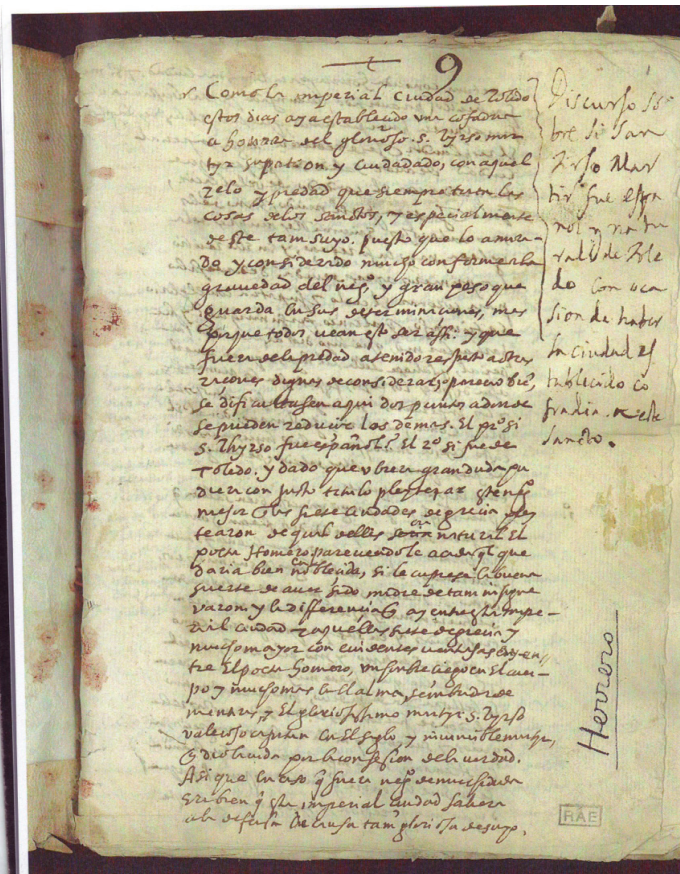 9
Como la imperial ciudad de Toledo
estos dias aya establecido una cofadria
a honrra del glorioso s. Tyrso mar
tyr su patron y ciudadado, con aquel
zelo y piedad que siempre tiene las
cosas de los sanctos, y especialmente
deste tam suyo. puesto que lo a mira-
do y considerado mucho conforme a la
gravedad del neg.º y gran peso que
guarda en sus determinaciones, mas
porque todos vean esto ser assi. y que
fuera de la piedad a tenido respecto a otras
razones dignas de consideracion parecio bie,
se dificultasen aqui dos puntos adonde
se pueden reducir los demas. El pº si
s. Thyrso fue español? El 2º si fue de
Toledo. y dado que ubiera gran duda pu
diera con justo titulo pleytear
mejor las siete ciudades de grecia pley
tearon de qual dellas era natural El
poeta Homero. pareciendole a cada q que
daria bien ennoblecida, si le cupiese la buena
suerte de aver sido madre de tam insigne
varon. y la differencia ay entre esta impe-
rial ciudad y aquellas siete de grecia y
mucho mayor con evidentes ventajas es en
tre El poeta homero, un hombre ciego en El cuer-
po y mucho mas en El alma, sembrador de
mentiras, y El gloriosissimo martyr s. Tyrso
valeroso capitan en El siglo y invincible martyr,
por la confesion de la verdad.
Asi que en caso q fuera neg.º de mucha duda
era bien q esta imperial ciudad saliera
a la defensa de causa tam gloriosa de suyo.
Discurso so
bre si San
Tirso Mar
tir fue espa
ñol y natu
ral de Tole
do con oca
sion de haber
la ciudad es
tablecido co
fradia a este
sancto.
Herrero
RAE